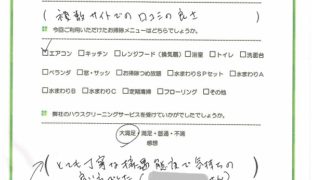 (複数サイトでの口コミの良さ
今回ご利用いただけたお掃除メニューはどちらでしょうか。
☑エアコン □キッチン □レンジフード(換気扇) □浴室 □トイレ □洗面台
□ベランダ □窓・サッシ □お掃除つめ放題 □水まわりSPセット □水まわりA
□水まわりB □水まわりC □定期清掃 □フローリング □その他
弊社のハウスクリーニングサービスを受けていかがでしたでしょうか。
大満足・満足・普通・不満
感想
(とても丁寧な 態度で気持ちの
良い でした( さん)